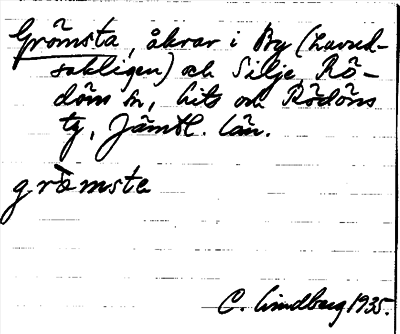 Grömsta, åkrar i By (huvud-
sakligen) och Silje, Rö-
döns sn, hits och Rödöns
tg, Jämtl. län.
grömsta
C. Lindberg 1935.